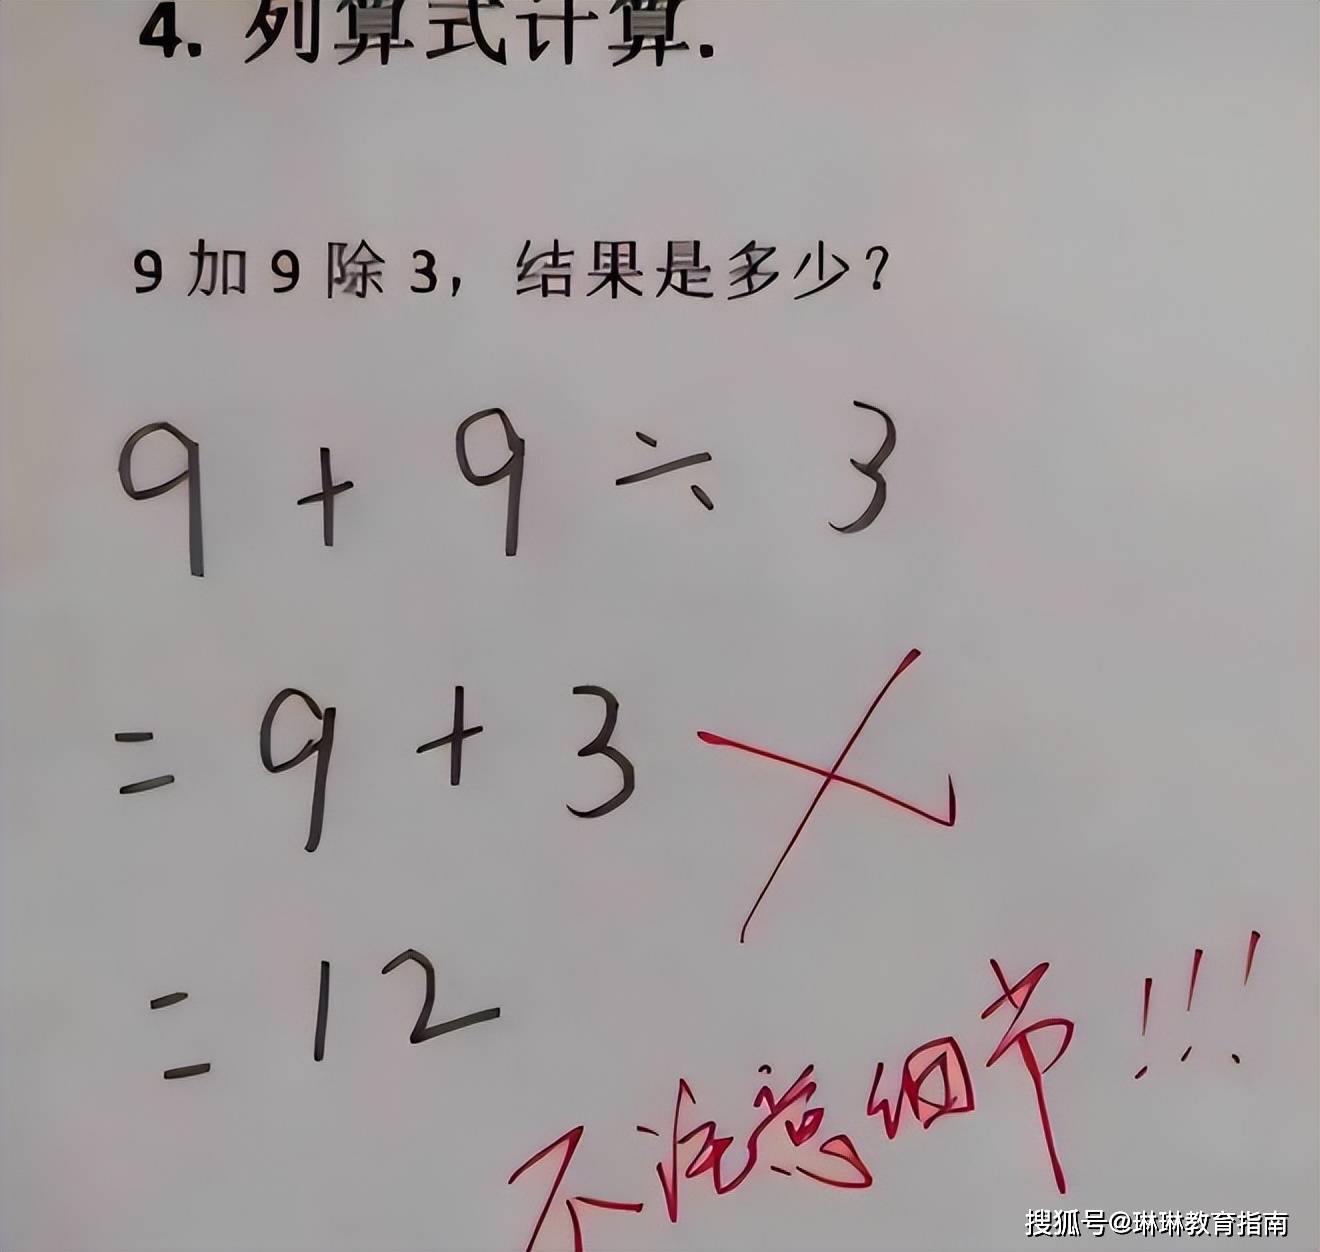 4. 列算式计算.
9 加 9 除 3，结果是多少？
9 + 9 ÷ 3
= 9 + 3
= 12
不注意细节!!!
搜狐号@琳琳教育指南